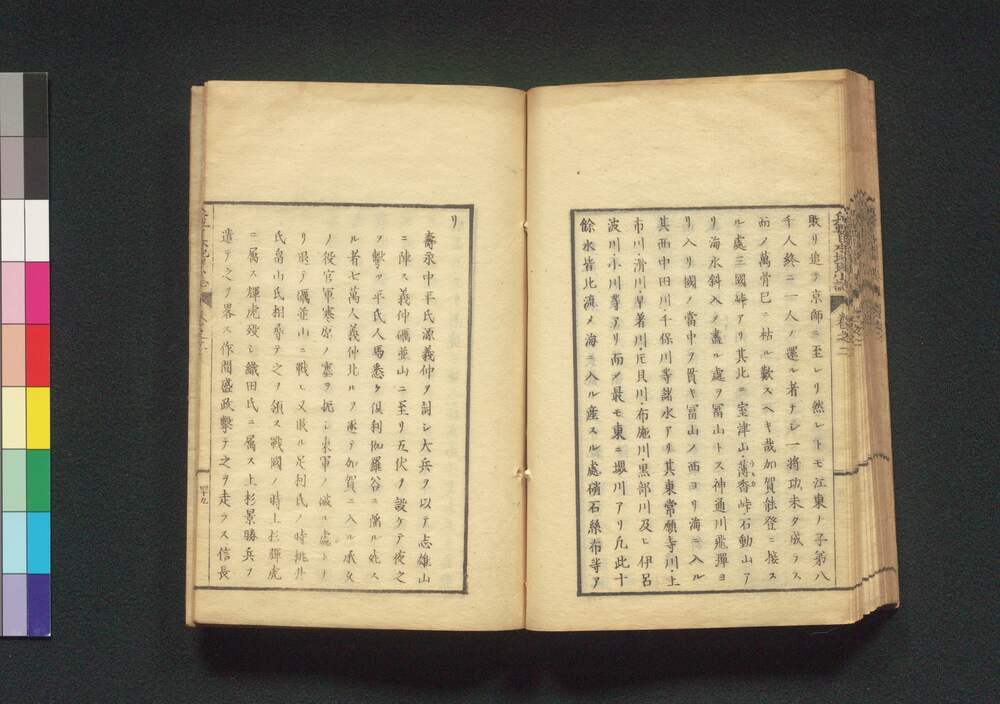 敗リ追テ京師ニ至レリ然レトモ江東ノ子第八
千人終ニ一人ノ還ル者ナシ一将功未タ成ラス
而ノ萬骨已ニ枯ル歎スヘキ哉加賀能登ニ接ス
ル處三國峠アリ其北ニ室津山・蓮沓峠・石動山ア
リ海水斜入ノ盡ル處ヲ冨山トス神通川飛彈ヨ
リ入リ國ノ當中ヲ貫キ冨山ノ西ヨリ海ニ入ル
其西中田川・千保川等諸水アリ其東常願寺川・上
市川・滑川・早著川・片貝川・布施川・黒部川及ヒ伊呂
波川・小川等アリ而ノ最モ東ニ堺川アリ凡此十
餘水皆北流メ海ニ入ル産スル處硝石絲布等ア
リ
壽永中平氏源義仲ヲ討シ大兵ヲ以テ志雄山
ニ陣ス義仲礪並山ニ至リ五伏ヲ設ケテ夜之
ヲ撃ツ平氏人馬悉ク倶利伽羅谷ニ落ル死ス
ル者七萬人義仲北ルヲ逐テ加賀ニ入ル承久
ノ役官軍寒原ノ塞ヲ扼シ東軍ノ滅ル處トナ
リ退テ礪並山ニ戰ヒ又敗ル足利氏ノ時桃井
氏畠山氏相尋テ之ヲ領ス戰國ノ時上杉輝虎
ニ属ス輝虎歿シ織田氏ニ属ス上杉景勝兵ヲ
遣テ之ヲ畧ス作間盛政撃テ之ヲ走ラス信長
卷之二
四十九